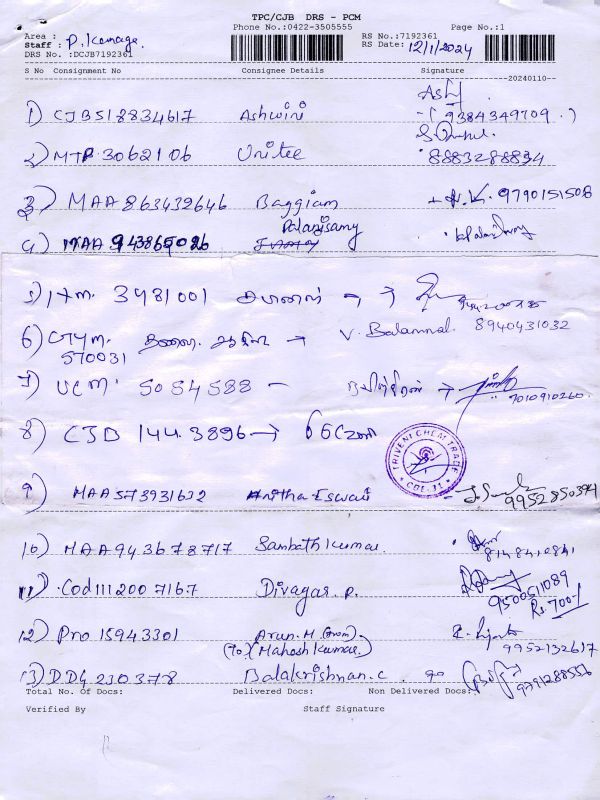 TPC/CJB DRS - PCM
Phone No.:0422-3505555 Page No.:1
Area :
Staff : P. Kanaga. RS No.:7192361
DRS No. :DCJB7192361 RS Date: 12/1/2024
S No Consignment No Consignee Details Signature
20240110--
1) CJB518834617 Ashwini (9384349709.)
2) MTP 3062106 Unitec 8883288834
3) MAA 863432646 Baggiam 9790151508
4) MAA 943865026 Palanisamy
5) ITM. 3481001
6) V. Balammal. 8940431032
570031
7) 5054588 - 7010910260.
8) CJB 144.3896 →
TRIVENI CHEM TRADE
9) MAA573931632 Anitha Eswari 9952850394
10) MAA943678717 Sambath kumar. 8148410841
11) Cod1112007167 Divagar. P. 9500511089
Rs. 700/-
12) Pro 15943301 Arun. M (from)
(To) (Mahesh kumar) 9952132617
13) DDG 2303778 Balakrishnan. C. 9791288556
Total No. Of Docs: Delivered Docs: Non Delivered Docs:
Verified By Staff Signature